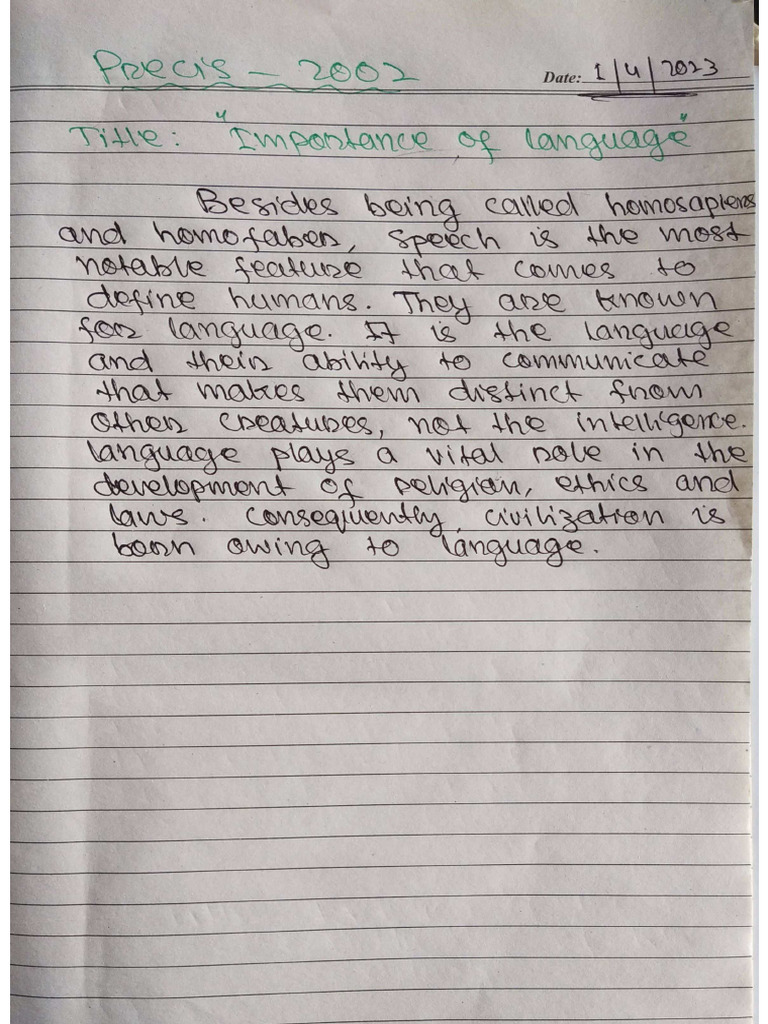 Precis - 2002
Date: 1/4/2023
Title: "Importance of language"
Besides being called homosapiens
and homofaber, speech is the most
notable feature that comes to
define humans. They are known
for language. It is the language
and their ability to communicate
that makes them distinct from
other creatures, not the intelligence.
language plays a vital role in the
development of religion, ethics and
laws. Consequently, civilization is
born owing to language.